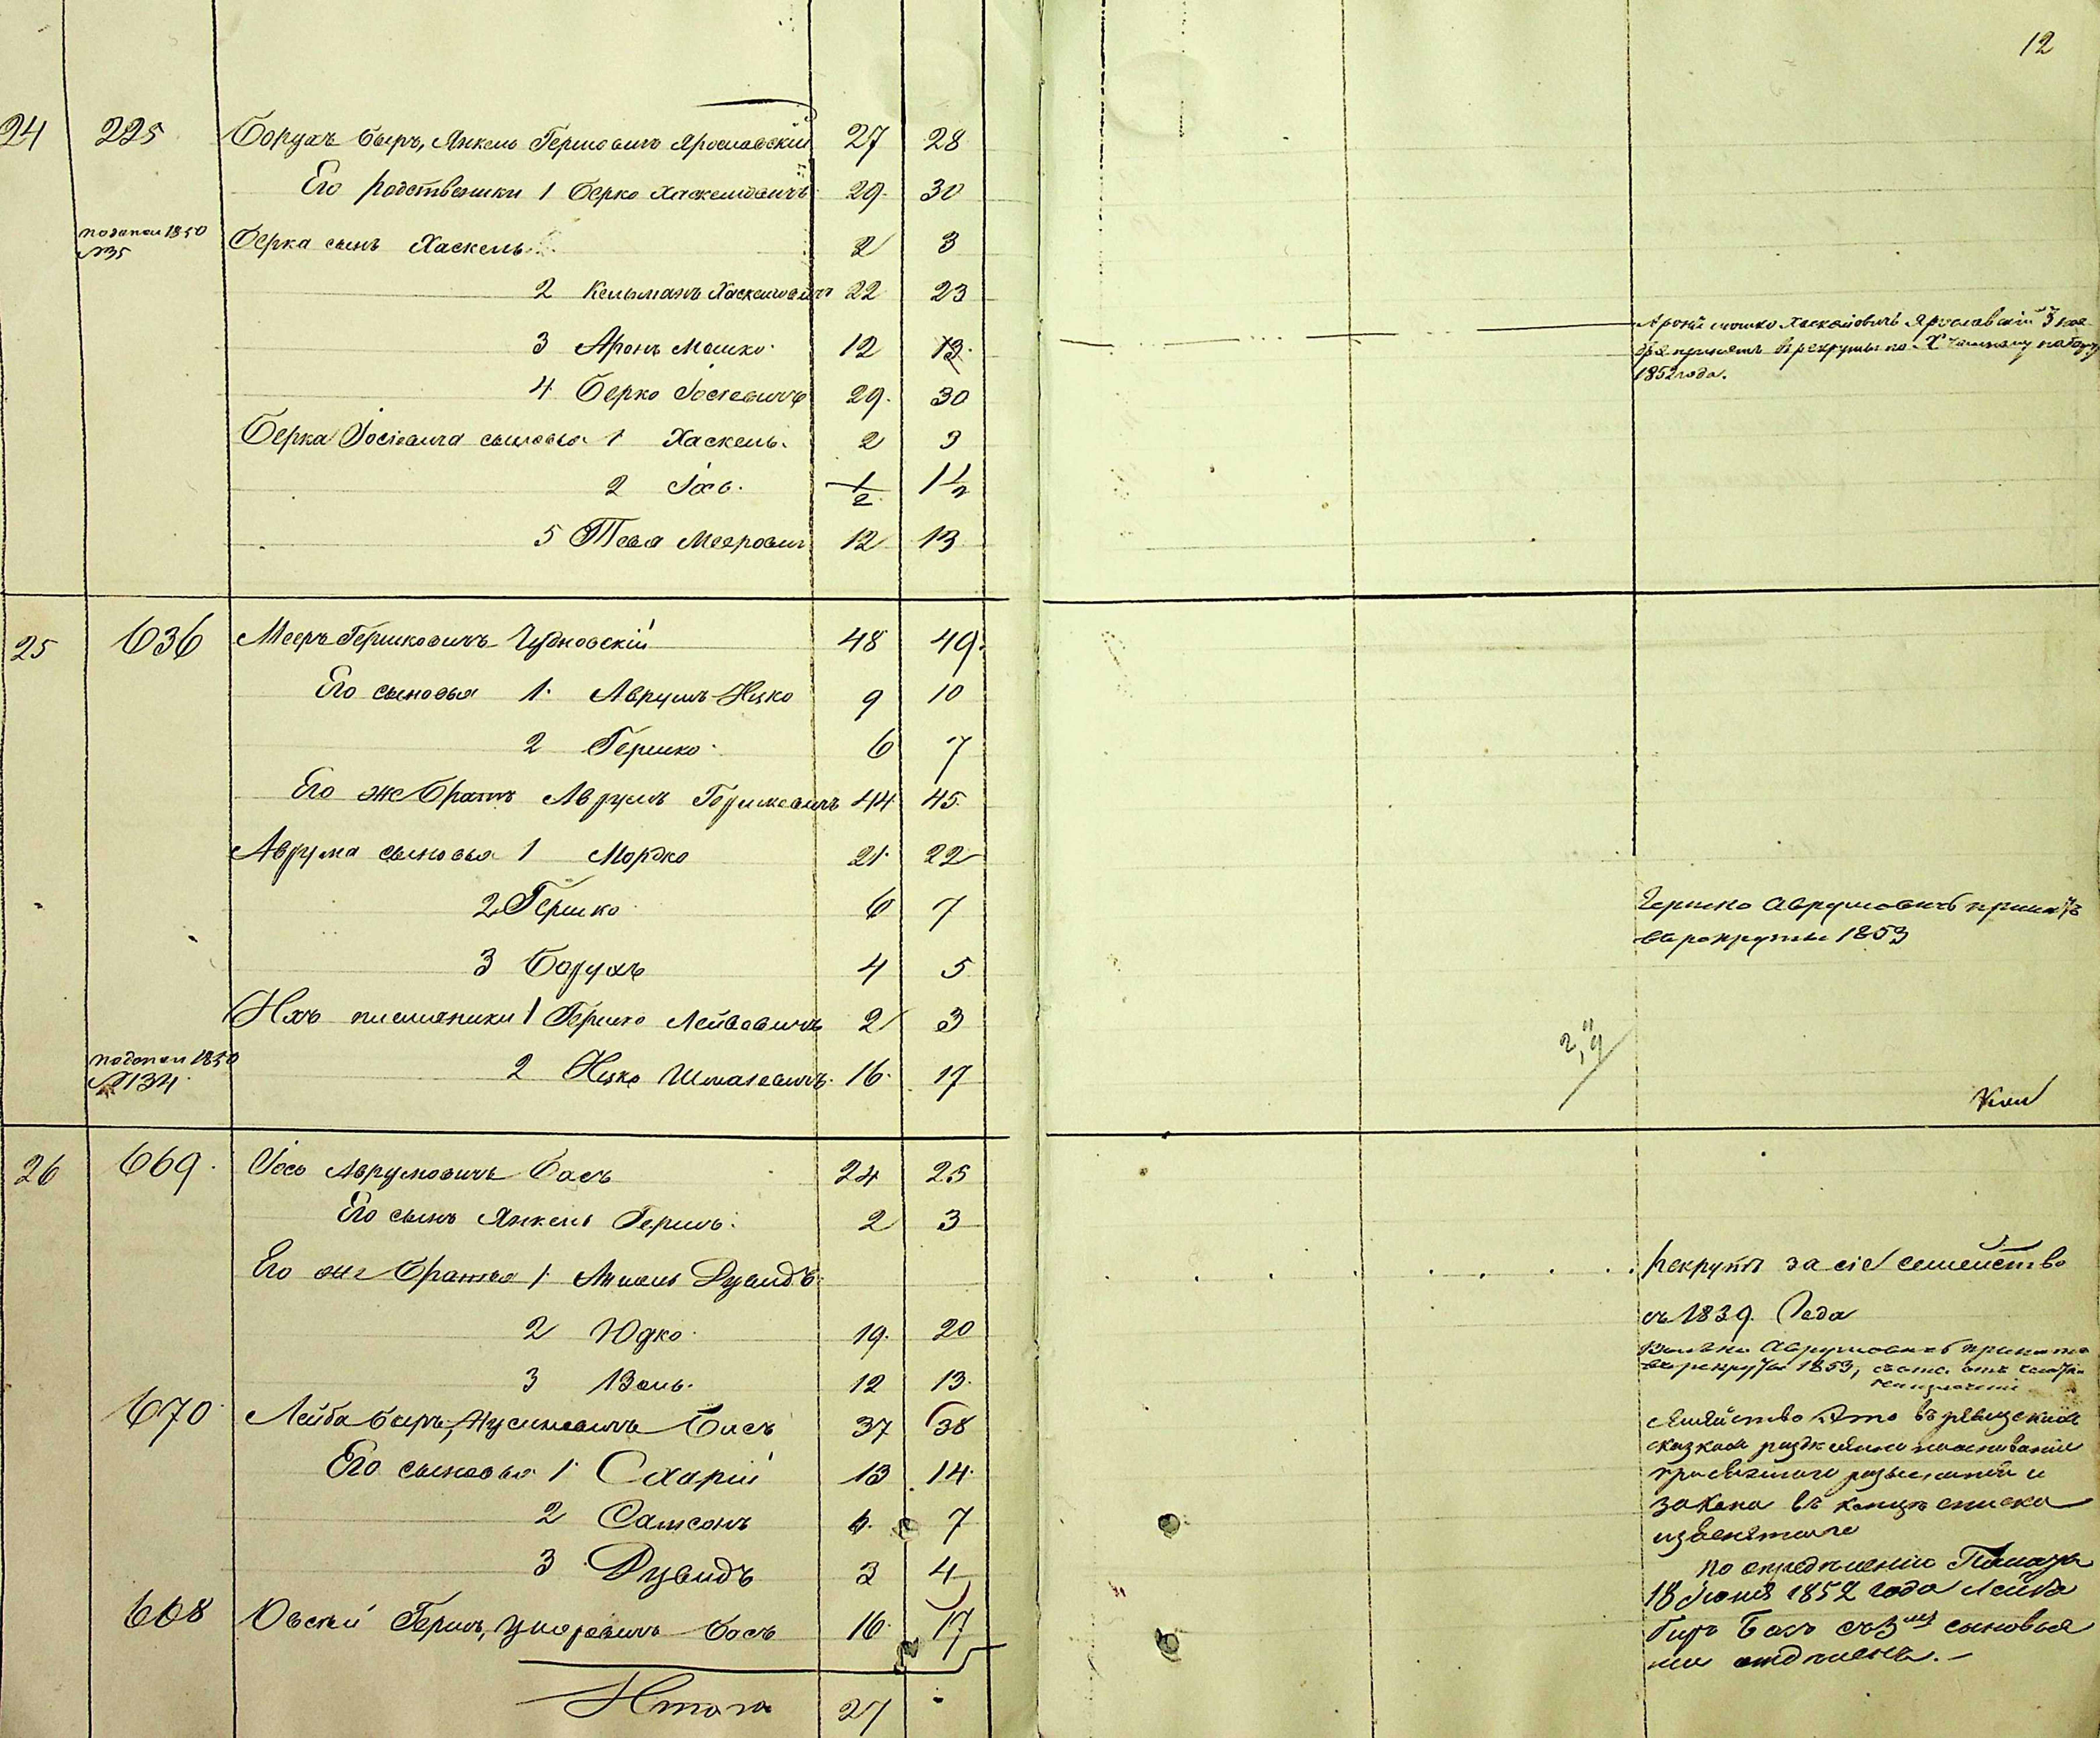 12
24 225 Борухъ Беръ, Янкель Гершовичъ Ярославскій 27 28
Его родственники 1 Берко Хаскелювичъ 29 30
1850 №35 Берка сынъ Хаскель 2 3
2 Кельманъ Хаскелювичъ 22 23
3 Аронъ Мошко 12 13
Аронъ мошко Хаскелювичъ Ярославскій
принятъ в рекруты по Х набору
1852 года.
4 Берко Іосіевичъ 29 30
Берка Іосіевича сыновья 1 Хаскель 2 3
2 Іось 1/2 1 1/2
5 Тевя Мееровичъ 12 13
25 636 Мееръ Гершковичъ Чудновскій 48 49
Его сыновья 1 Аврумъ-Ицко 9 10
2 Гершко 6 7
Его же братъ Аврумъ Гершковичъ 44 45
Аврума сыновья 1 Мордко 21 22
2 Гершко 6 7
Гершко Аврумовичъ принятъ
въ рекруты 1853
3 Борухъ 4 5
Ихъ племяники 1 Гершко Лейбовичъ 2 3
1850
№134 2 Ицко Шмулевичъ 16 17
26 669 Іось Аврумовичъ Басъ 24 25
Его сынъ Янкель Гершъ 2 3
Его же братья 1 Дувидъ
Рекрутъ за сіе семейство
съ 1839 Года
2 Юдко 19 20
Аврумовичъ принятъ
въ рекруты 1853,
3 Воль 12 13
670 Лейба Беръ, Нусимовичъ Басъ 37 38
семейство это въ ревизских
сказках
Его сыновья 1 Схарій 13 14
закона въ концѣ списка
2 Самсонъ 6 7
3 Дувидъ 3 4
По опредѣленію Палаты
18 Іюня 1852 года Лейба
668 Овсей Гершъ, Басъ 16 17
Беръ Басъ съ 3мя сыновья
ми отдѣленъ.
Итого 27